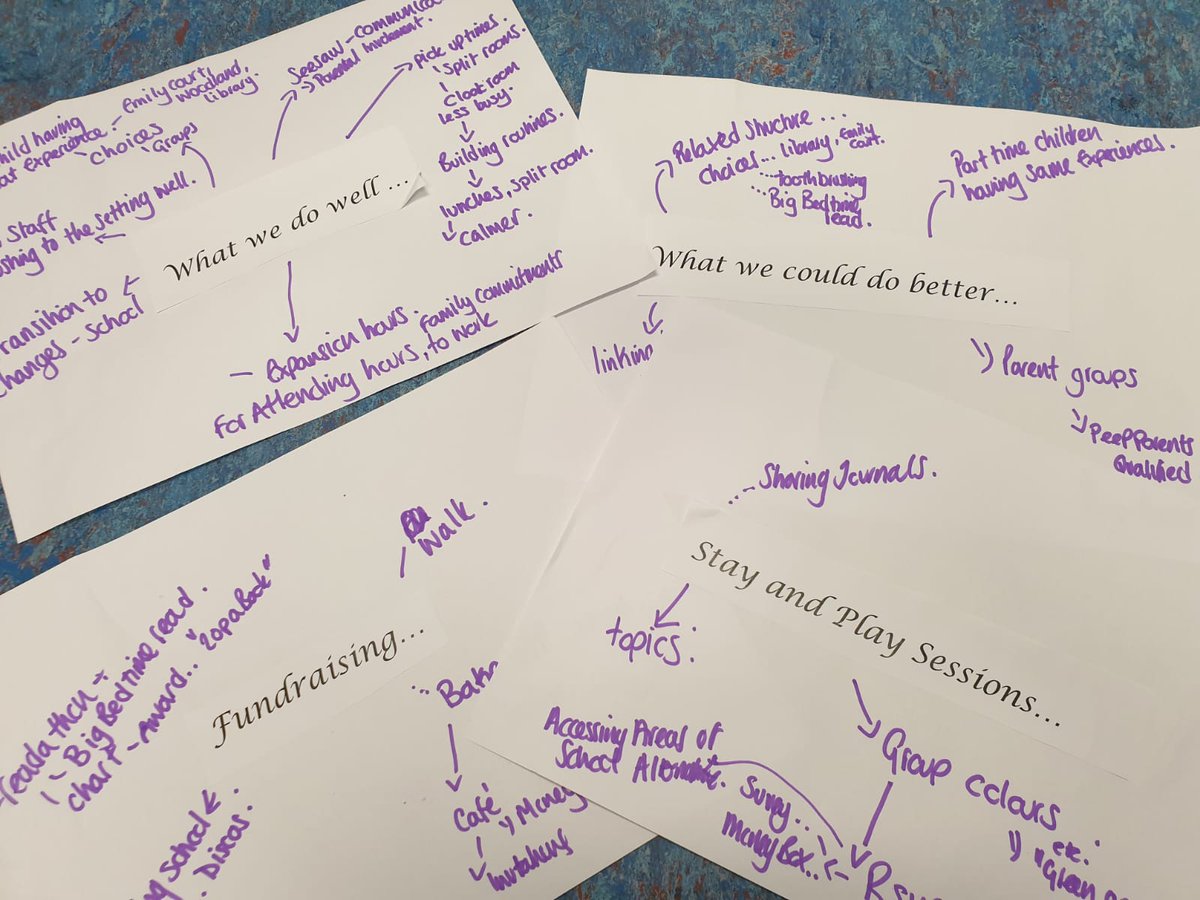 Child having
experience -
Emily court,
woodland,
library.
choices
Groups
Seesaw - communica
→ Parental involvement.
Pick up times.
Split rooms.
Cloak room
less busy.
Building routines.
lunches, split room.
Calmer.
What we do well ...
Staff
to the setting well.
transition to
changes - School
- Expansion hours.
for Attending hours, to work
family commitments
Relaxed Structure ...
choices... Library, Emily
Court.
... toothbrushing
... Big Bedtime
read.
Part time children
having same experiences.
What we could do better...
linkin
Parent groups
Peep Parents
Qualified
Walk.
Fundraising...
readathon -
Big Bedtime read.
chart - Award.. "20p a Book"
... Bak
Café
Money
school
. Discos.
... Sharing Journals.
Stay and Play Sessions...
topics.
Accessing Areas of
School
Money Box..
Group colours
etc.
"Green